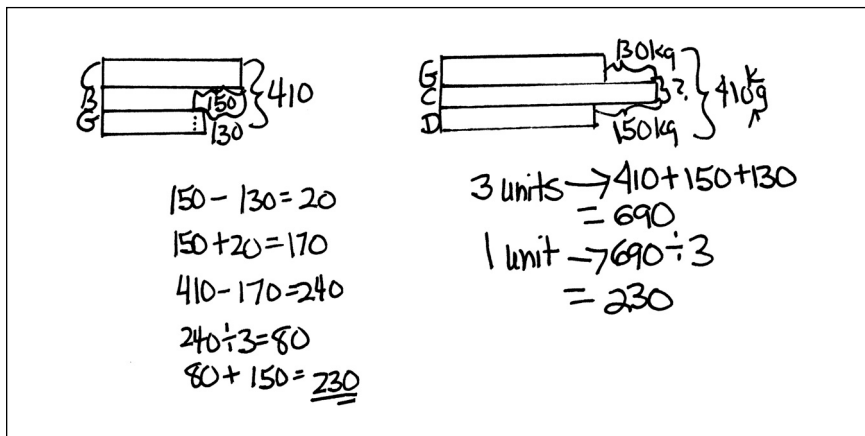 C
B
G
150
130
410
150 - 130 = 20
150 + 20 = 170
410 - 170 = 240
240 ÷ 3 = 80
80 + 150 = 230
G
C
D
130kg
?
150kg
410kg
3 units → 410 + 150 + 130
= 690
1 unit → 690 ÷ 3
= 230